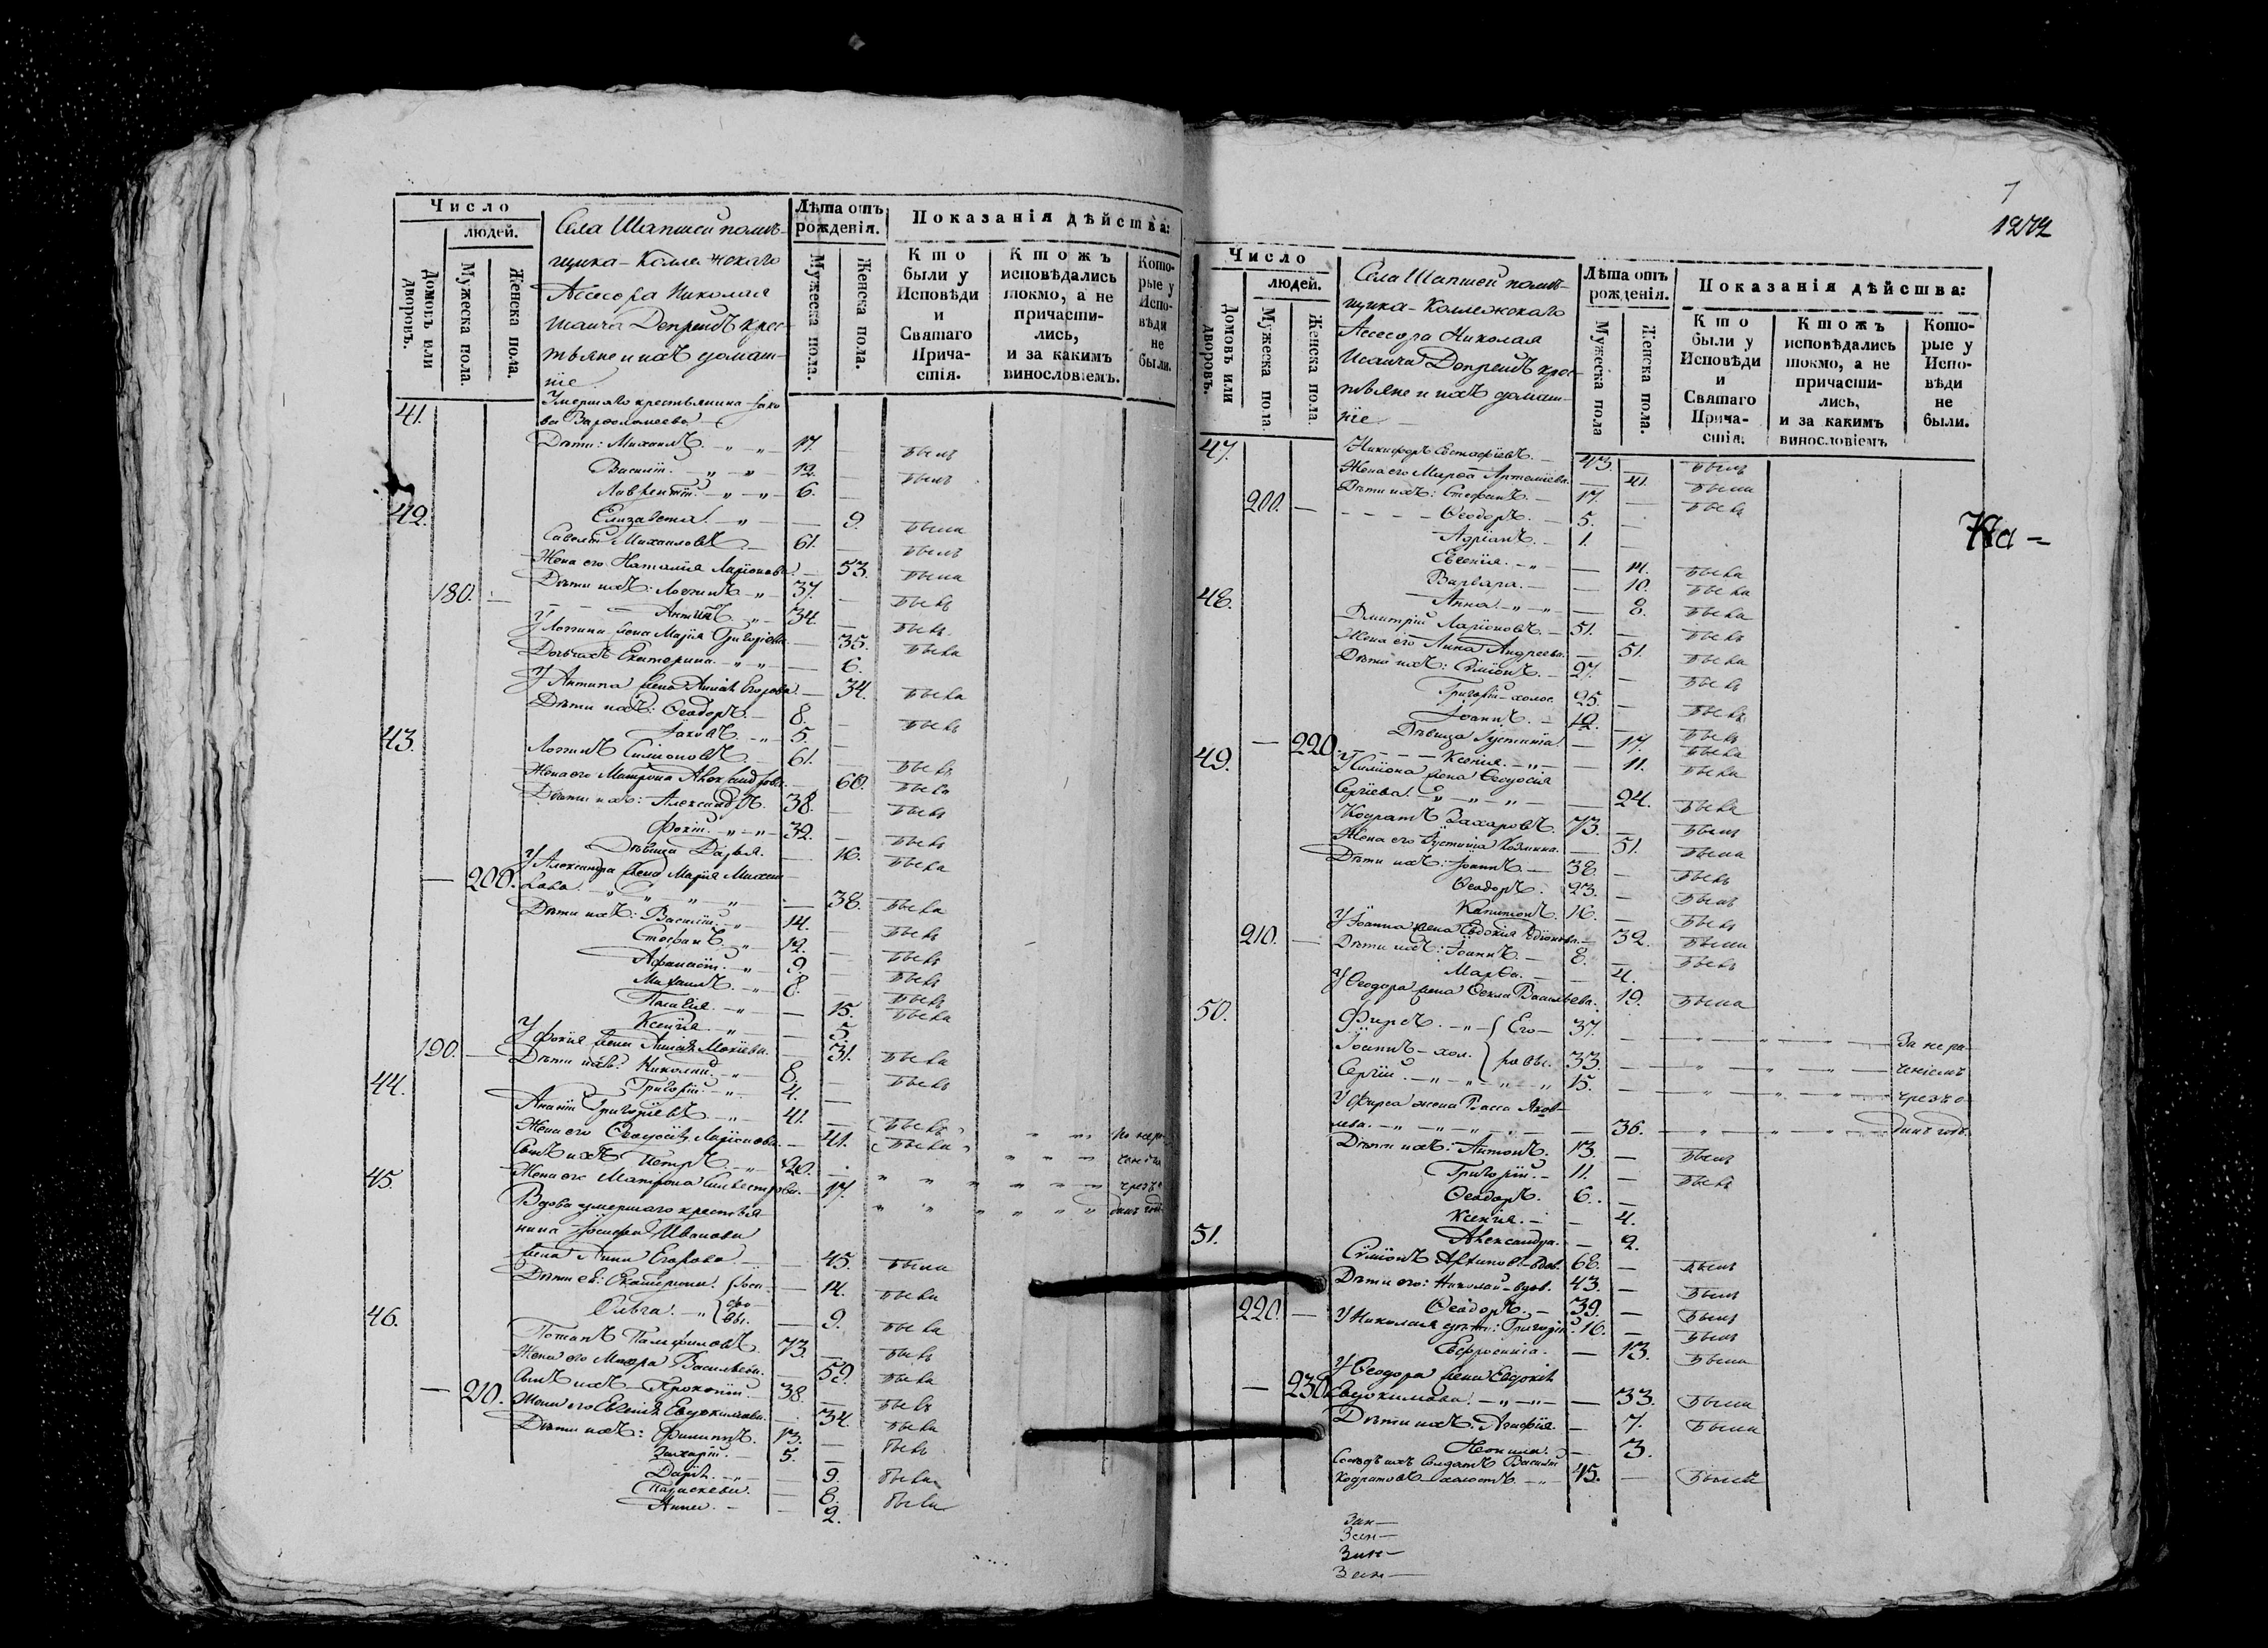 Число
людей.
Домовъ или дворовъ.
Мужеска пола.
Женска пола.
Села Шапшеи помѣ-
щика - Коллежскаго
Асесора Николая
Исаича Депрейсъ крес-
тьяне и ихъ домаш-
ніе
Лѣта отъ рожденія.
Мужеска пола.
Женска пола.
Показанія дѣйства:
Кто были у Исповѣди и Святаго Причастія.
Ктожъ исповѣдались токмо, а не причастились, и за какимъ винословіемъ.
Которые у Исповѣди не были.
41. Умершаго крестьянина Іако
ва Варѳоломеева
Дѣти: Михаилъ. 17. — былъ
Василій. 12. — былъ
Лаврентій. 6. —
Елизавета. — 9. была
42. Савелій Михаиловъ. 61. — былъ
Жена его Наталія Ларіонова. — 53. была
180. Дѣти ихъ: Логинъ 37. — былъ
Антипъ. 34. — былъ
У Логина жена Марія Григорьева. — 35. была
Дочь ихъ Екатерина. — 6.
У Антипа жена Егорова — 34. была
Дѣти ихъ: Ѳеодоръ. 8. — былъ
Іаковъ. 5. —
43. Логинъ Симіоновъ. 61. — былъ
Жена его Матрона Александрова. — 60. была
Дѣти ихъ: Александръ. 38. — былъ
Фокій. 32. — былъ
Дѣвица Дарья. — 16. была
У Александра жена Марія Михаи-
— 200. лова. — 38. была
Дѣти ихъ: Василій. 14. — былъ
Стефанъ. 12. — былъ
Афанасій. 9. — былъ
Михаилъ. 8. — былъ
Пелагія. — 15. была
Ксенія. — 5.
У Фокія жена — 31. была
190. — Дѣти ихъ: Николай. 8. — былъ
Григорій. 4. —
44. Ананій Григорьевъ 41. — былъ
Жена его Ѳеодосія Ларіонова. — 41. была
Сынъ ихъ Петръ. 20. —
Жена его Матрона Силвестрова. — 17.
45. Вдова умершаго крестья-
нина Іосифа Иванова
жена Анна Егорова — 45. была
Дѣти ея: Екатерина. — 14. была
Ольга. — 9. была
46. Потапъ Памфиловъ. 73. — былъ
Жена его Мавра Васильева. — 59. была
Сынъ ихъ Прокопій. 38. — былъ
— 210. Жена его Евгенія Евдокимова. — 34. была
Дѣти ихъ: Филиппъ. 13. — былъ
Захарій. 5. —
Дарія. — 9. была
Параскева. — 8. была
Анна. — 2.
7
1272
Число
людей.
Домовъ или дворовъ.
Мужеска пола.
Женска пола.
Села Шапшеи помѣ-
щика - Коллежскаго
Асесора Николая
Исаича Депрейсъ крес-
тьяне и ихъ домаш-
ніе
Лѣта отъ рожденія.
Мужеска пола
Женска пола.
Показанія дѣйства:
Кто были у Исповѣди и Святаго Причастія.
Ктожъ исповѣдались токмо, а не причастились, и за какимъ винословіемъ
Которые у Исповѣди не были.
47. Никифоръ Евстафіевъ. 43. — былъ
Жена его Марѳа Артеміева. — 41. была
200. — Дѣти ихъ: Стефанъ. 17. — былъ
Ѳеодоръ. 5. —
Адріанъ. 1. —
Евгенія. — 14. была
Варвара. — 10. была
Анна. — 8. была
48. Дмитрій Ларіоновъ. 51. — былъ
Жена его Анна Андреева. — 51. была
Дѣти ихъ: Симіонъ. 27. — былъ
Григорій - холос. 25. — былъ
Іоаннъ. 12. — былъ
Дѣвица Іустинія. — 17. была
— 220. Ксенія. — 11. была
У Симіона жена Ѳеодосія
Сергіева. — 24. была
49. Кодратъ Захаровъ. 73. — былъ
Жена его Іустинія Козмина. — 51. была
Дѣти ихъ: Іоаннъ. 38. — былъ
Ѳеодоръ. 23. — былъ
Капитонъ. 16. — былъ
У Іоанна жена Евдокія Родіонова. — 32. была
210. — Дѣти ихъ: Іоаннъ. 8. — былъ
Марѳа. — 4.
У Ѳеодора жена Ѳекла Васильева. — 19. была
50. Фирсъ. Его- 37. — За нера-
Іоаннъ - хол. ровы. 33. — чѣніемъ
Сергій. 15. — чрезъ о-
У Фирса жена Васса Яков-
лева. — 36. динъ годъ.
Дѣти ихъ: Антонъ. 13. — былъ
Григорій. 11. — былъ
Ѳеодоръ. 6. —
Ксенія. — 4.
Александра. — 2.
51. Симіонъ Архиповъ - вдов. 68. — былъ
Дѣти его: Николай - вдов. 43. — былъ
Ѳеодоръ. 39. — былъ
220. — У Николая дѣти: Григорій. 16. — былъ
Евфросинія. — 13. была
У Ѳеодора жена Евдокія
— 230. Евдокимова. — 33. была
Дѣти ихъ: Агафія. — 7. была
Неонила. — 3.
Сосѣдъ ихъ солдатъ Василій
Кодратовъ - холостъ. 45. — былъ
На =